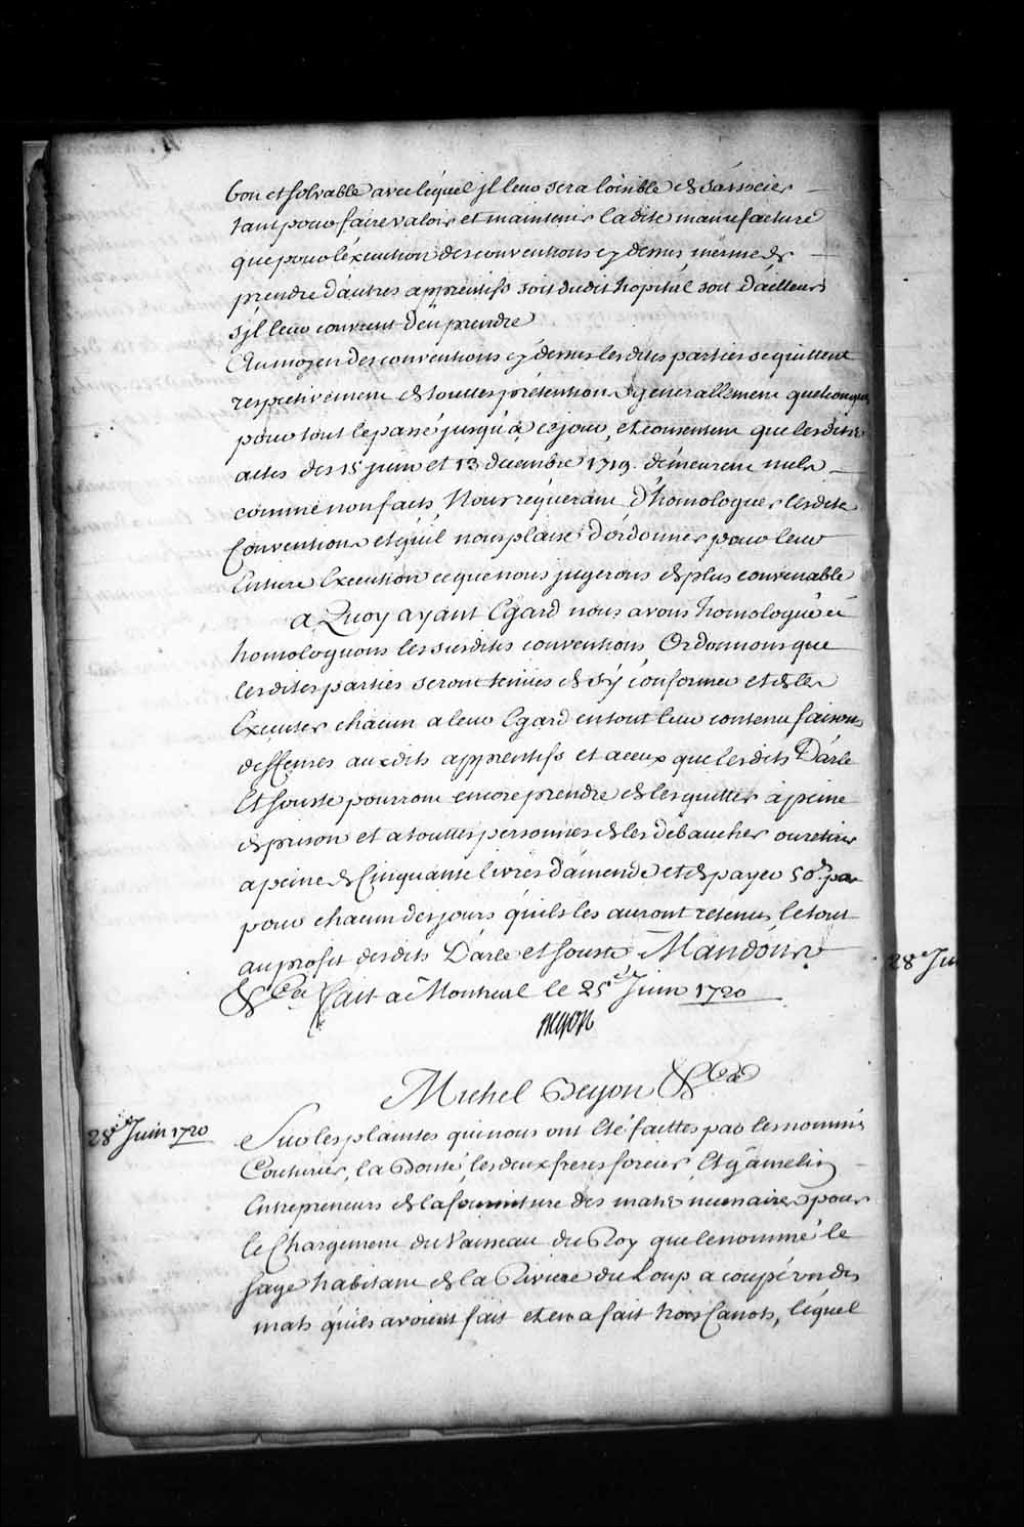 bon et solvable avec lequel jl leur sera loisible de s'associer
tant pour faire valoir et maintenir la dite manufacture
que pour l'éxécution des conventions cy dessus mesme de
prendre d'autres apprentifs soit dudit hopital soit d'ailleurs
s'jl leur convient d'en prendre
Au moyen des conventions cy dessus lesdites parties se quittent
respectivement de touttes prétentions generallement quelconques
pour tout le passé jusqu'à ce jour, et consentent que lesdits
actes des 15 juin et 13 decembre 1719. demeurent nuls
comme non faits, Nous réquerant d'homologuer lesdites
Conventions et qu'il nous plaise d'ordonner pour leur
Entiere Execution ce que nous jugerons de plus convenable
a Quoy ayant Egard nous avons homologué et
homologuons les susdites conventions, Ordonnons que
lesdites parties seront tenües de s'y conformer et de les
Executer chacun a leur Egard en tout leur contenu faisons
deffenses auxdits apprentifs et a ceux que lesdits Darle
Et Souste pourront encore prendre de les quitter à peine
de prison et a touttes personnes de les debaucher ou retirer
a peine de Cinquante livres d'amende et de payer 50 s. par
pour chacun des jours qu'ils les auront retenus, le tout
au profit desdits Darle et Souste Mandons
&ca fait a Montreal le 25e Juin 1720
Begon
28e Ju
Michel Begon &ca
28e Juin 1720
Sur les plaintes qui nous ont Eté faittes par les nommés
Couturier, la Bonté, les deux freres forcier, Et Gamelin
Entrepreneurs de la fourniture des mats necessaires pour
le Chargement du Vaisseau du Roy que le nommé le
Sage habitant de la Riviere du Loup a coupé un des
mats qu'ils avoient fait et en a fait trois Canots, lequel